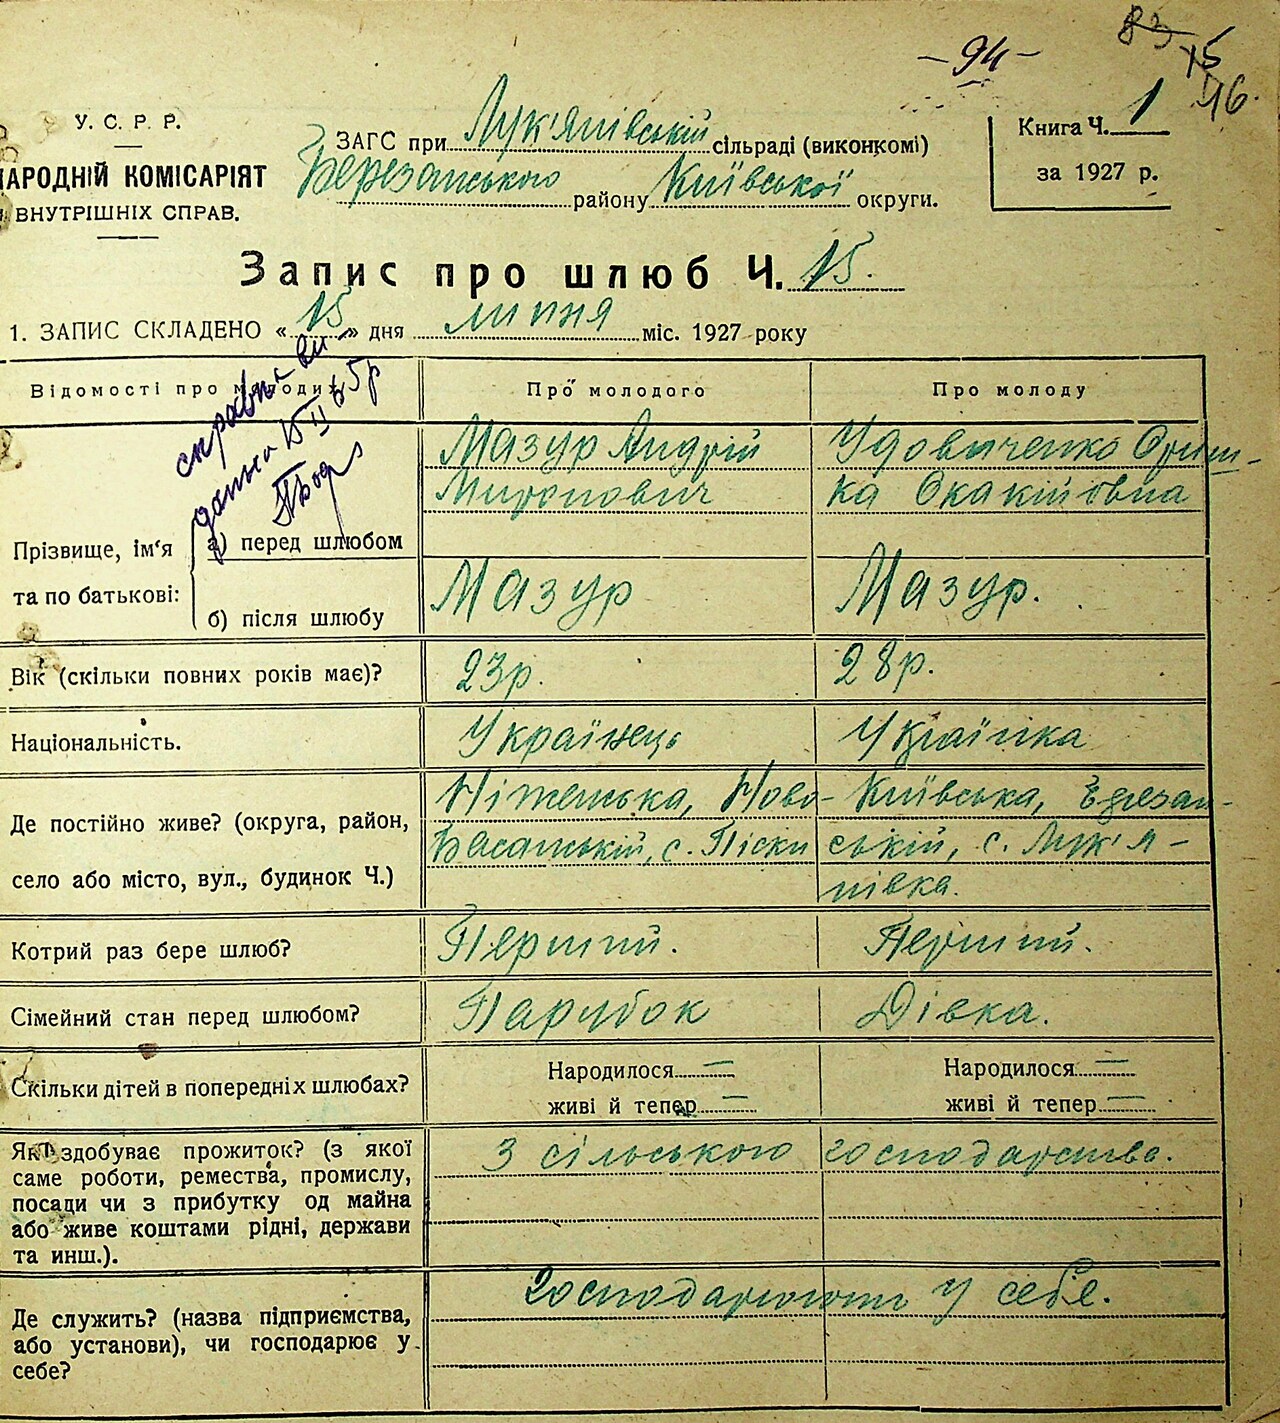 - 94 -
83
15
16
У. С. Р. Р.
НАРОДНІЙ КОМІСАРІЯТ
ВНУТРІШНІХ СПРАВ.
ЗАГС при Лук'янівській сільраді (виконкомі)
Березанського району Київської округи.
Книга Ч. 1
за 1927 р.
Запис про шлюб Ч. 15.
1. ЗАПИС СКЛАДЕНО « 15 » дня липня міс. 1927 року
Відомості про молодих
Про молодого
Про молоду
Прізвище, ім'я
та по батькові:
а) перед шлюбом
Мазур Андрій
Миронович
Удовиченко Ориш-
ка Окакійовна
б) після шлюбу
Мазур
Мазур.
Вік (скільки повних років має)?
23р.
28р.
Національність.
Українець
Українка
Де постійно живе? (округа, район,
село або місто, вул., будинок Ч.)
Ніженська, Ново-
Басанський, с. Піски
Київська, Березан-
ській, с. Лук'я-
нівка.
Котрий раз бере шлюб?
Перший.
Перший.
Сімейний стан перед шлюбом?
Парубок
Дівка.
Скільки дітей в попередніх шлюбах?
Народилося —
живі й тепер —
Народилося —
живі й тепер —
Як здобуває прожиток? (з якої
саме роботи, ремества, промислу,
посади чи з прибутку од майна
або живе коштами рідні, держави
та инш.).
З сільського господарства.
Де служить? (назва підприємства,
або установи), чи господарює у
себе?
Господарюють у себе.